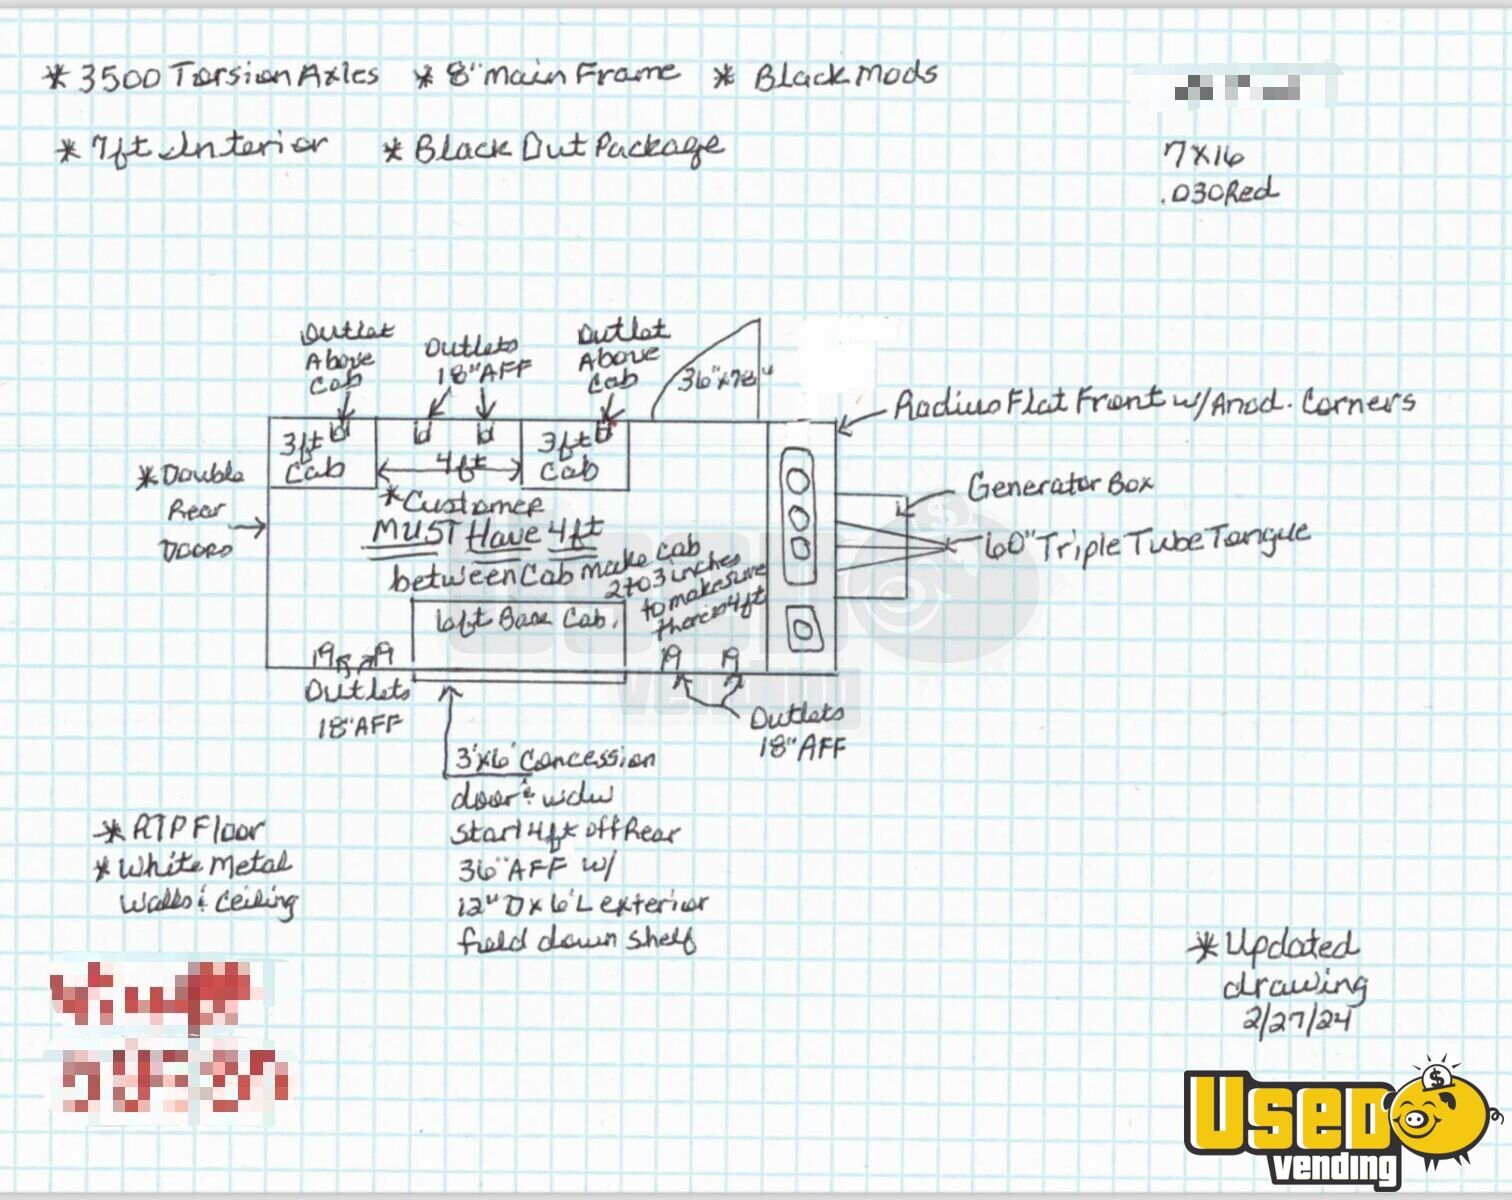 * 3500 Torsion Axles * 8" Main Frame * Black Mods
* 7ft Interior * Black Out Package
7X16
.030 Red
Outlet
Above
Cab
Outlets
18" AFF
Outlet
Above
Cab
36"x78"
Radius Flat Front w/ Anod. Corners
3ft
Cab
4ft
3ft
Cab
* Double
Rear
Doors
Generator Box
60" Triple Tube Tongue
* Customer
MUST Have 4ft
between Cab make cab
2 to 3 inches
to make sure
there is 4ft
6ft Base Cab.
Outlets
18" AFF
Outlets
18" AFF
3'x6' Concession
door & wdw
start 4ft off Rear
36" AFF w/
12" D x 6' L exterior
fold down shelf
* ATP Floor
* White Metal
Walls & Ceiling
* Updated
drawing
2/27/24
Used
Vending